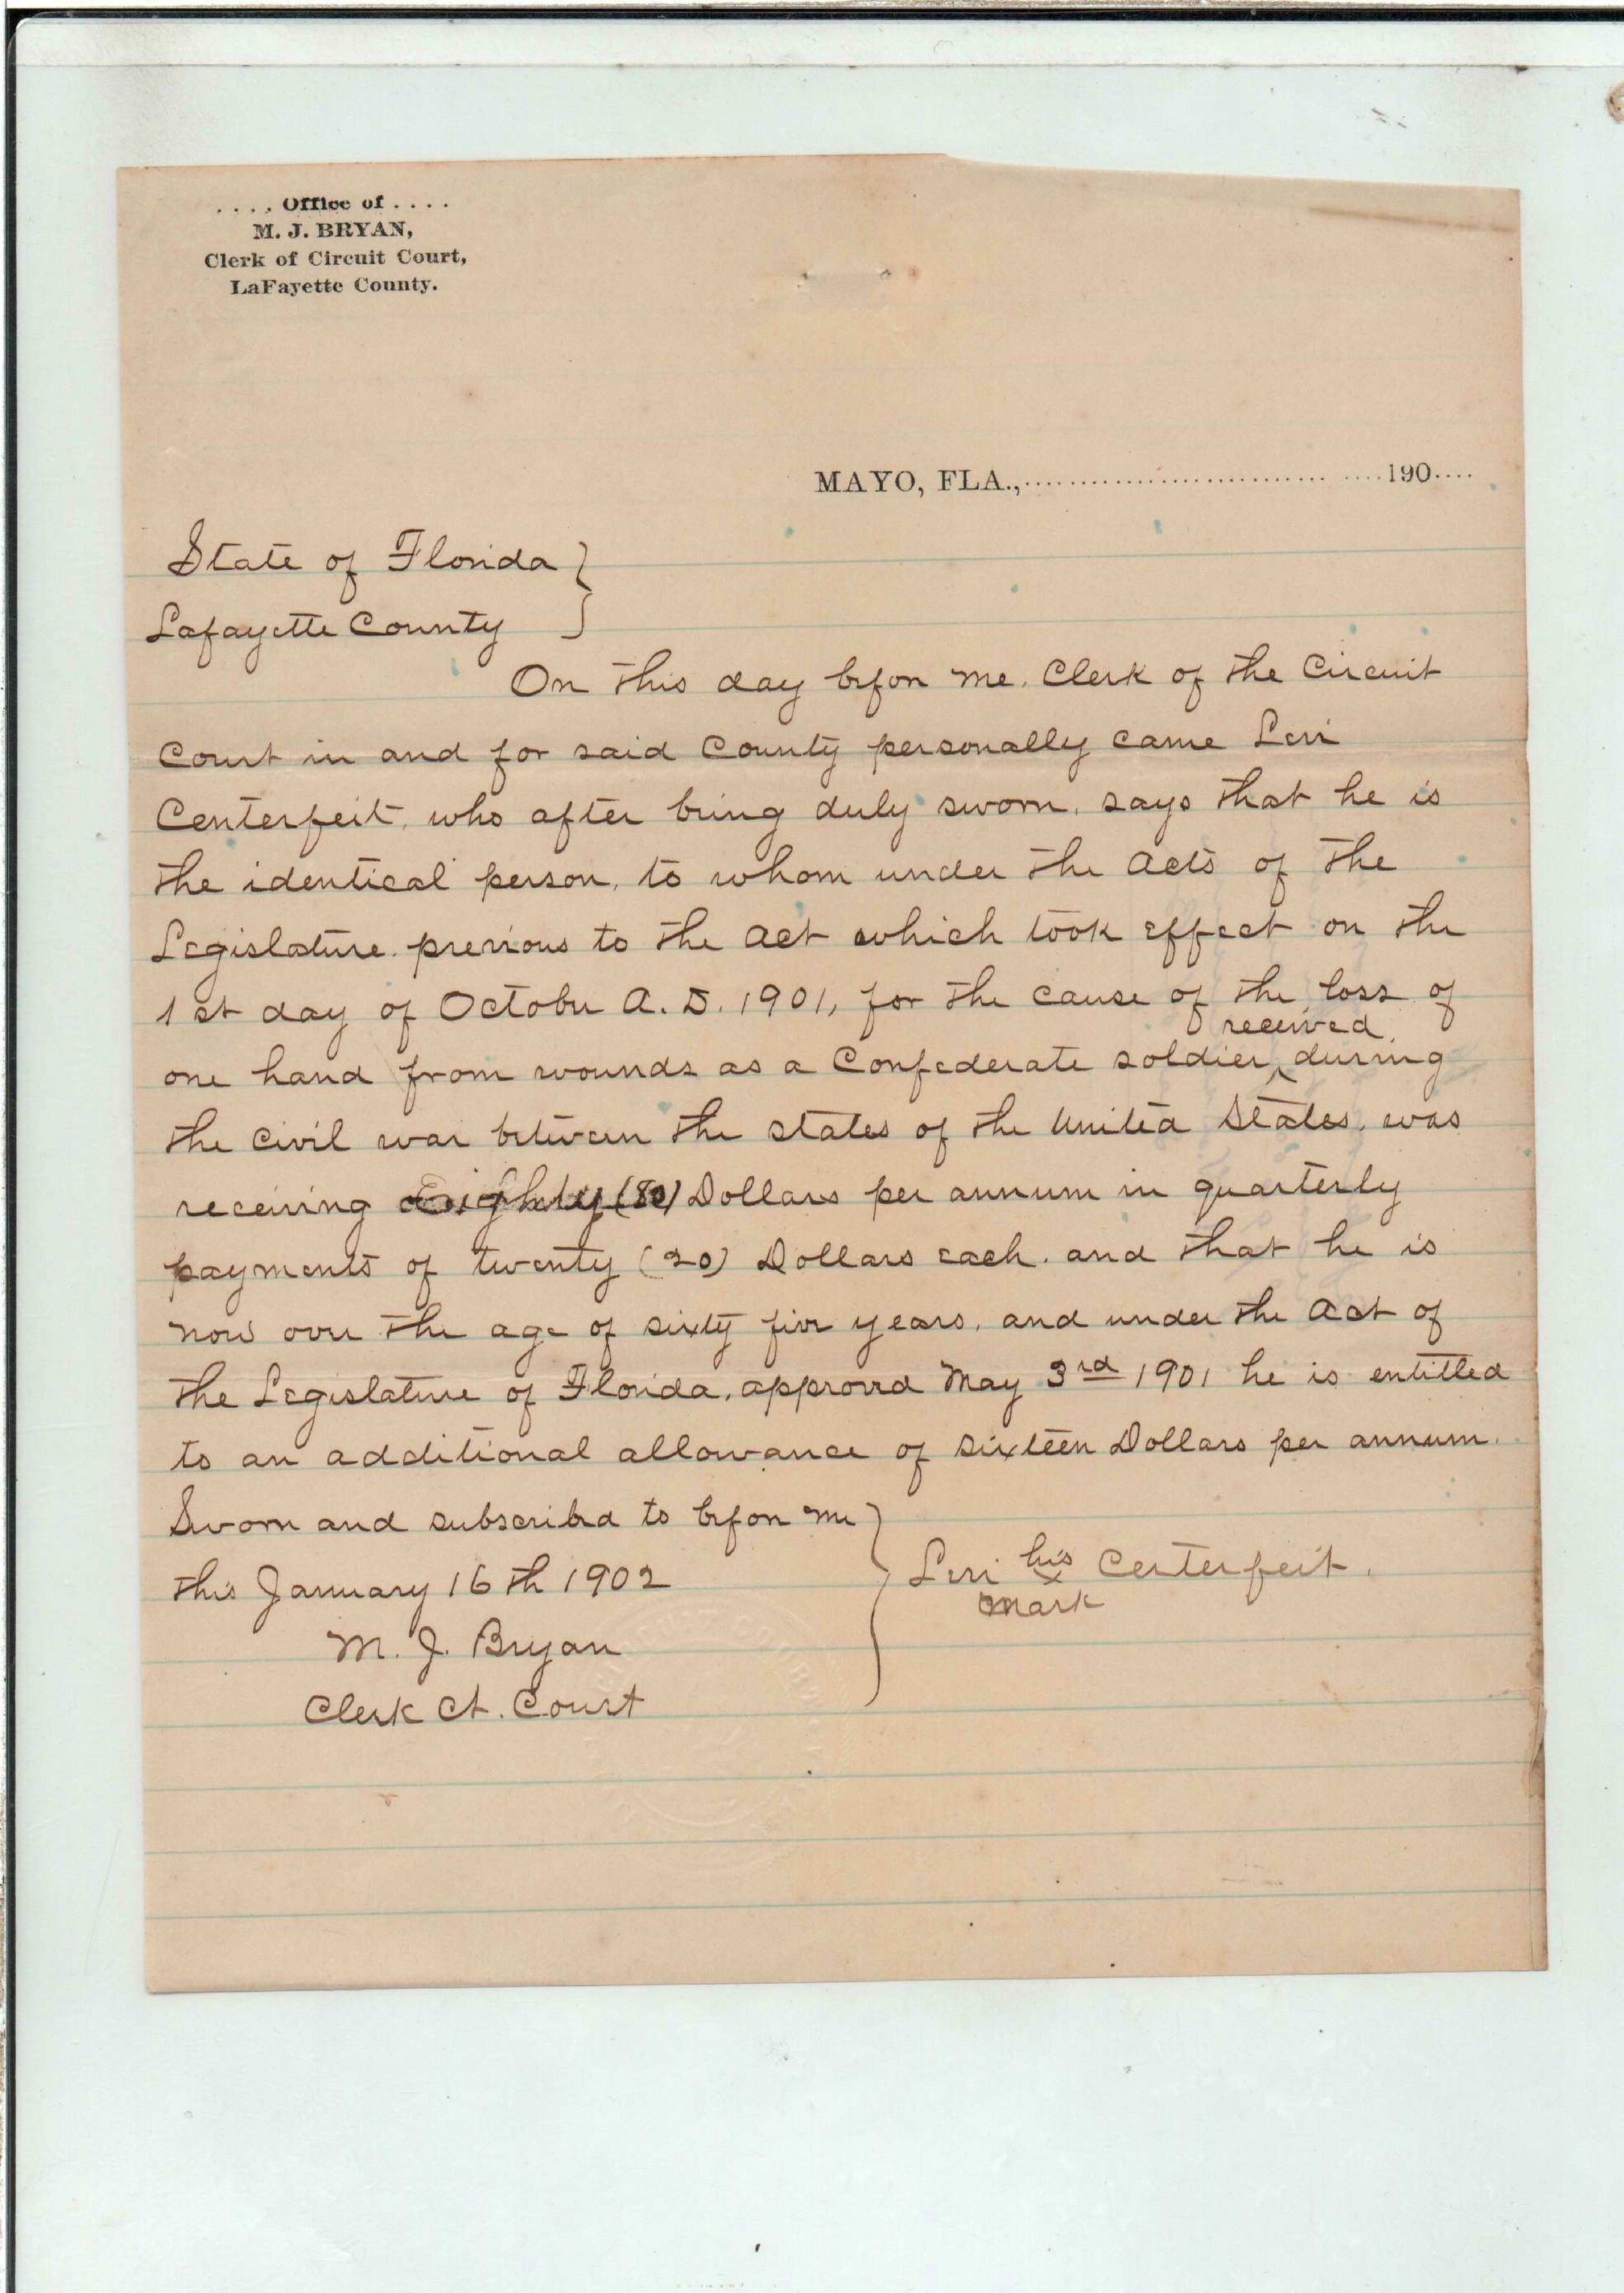 .... Office of ....
M. J. BRYAN,
Clerk of Circuit Court,
LaFayette County.
MAYO, FLA., 190
State of Florida }
Lafayette County }
On this day before me, Clerk of the Circuit
Court in and for said County personally came Levi
Centerfeit, who after being duly sworn, says that he is
the identical person, to whom under the Acts of the
Legislature previous to the Act which took effect on the
1st day of October A. D. 1901, for the cause of the loss of
received
one hand from wounds as a Confederate soldier ^ during
the civil war between the states of the United States, was
receiving Eighty (80) Dollars per annum in quarterly
payments of twenty (20) Dollars each. and that he is
now over the age of sixty five years, and under the Act of
the Legislature of Florida, approved May 3rd 1901 he is entitled
to an additional allowance of sixteen Dollars per annum.
Sworn and subscribed to before me }
this January 16th 1902
Levi his x Centerfeit.
mark
M. J. Bryan
Clerk Ct. Court